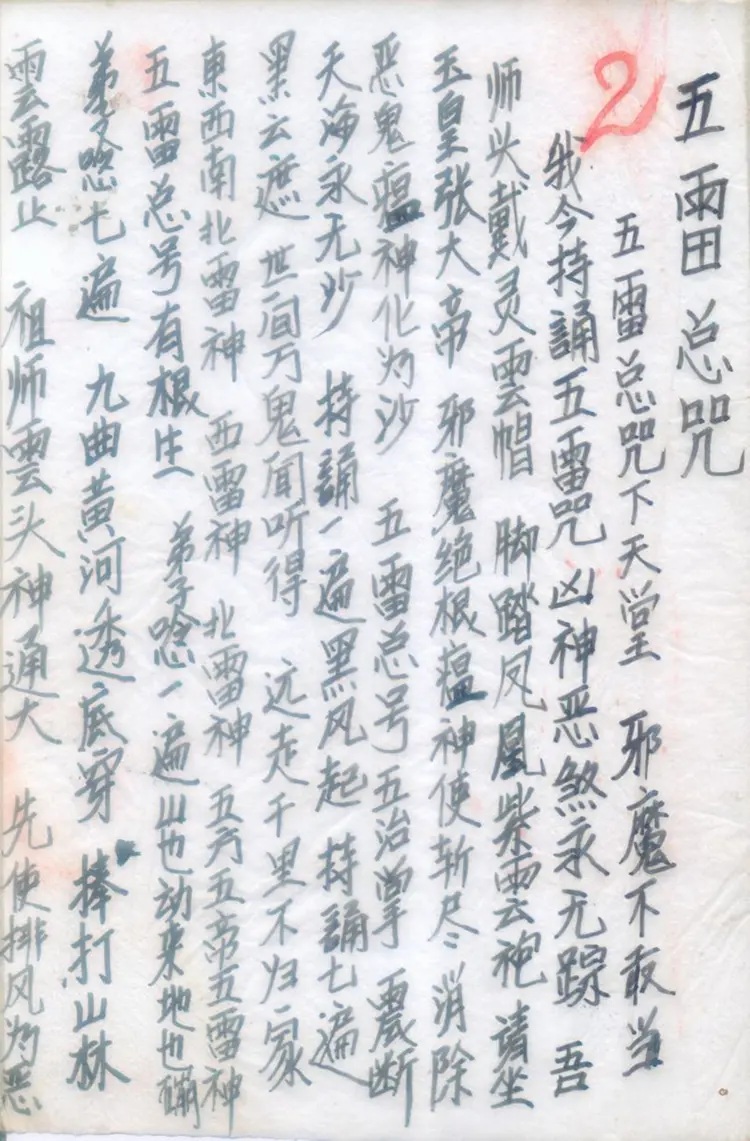 五雷总咒
2
五雷总咒下天堂 邪魔不敢当
我今持誦五雷咒 凶神恶煞永无踪 吾
师头戴灵雲帽 脚踏凤凰紫雲袍 請坐
玉皇张大帝 邪魔绝根瘟神使斩尽消除
恶鬼瘟神化为沙 五雷总号五治掌 震断
天海永无沙 持誦一遍黑风起 持誦七遍
黑云遮 世间万鬼闻听得 远走千里不归家
東西南北雷神 西雷神 北雷神 五方五帝五雷神
五雷总号有根生 弟子唸一遍山也动来地也硼
弟子唸七遍 九曲黄河透底穿 捧打山林
雲露止 祖师雲头神通大 先使排风为恶